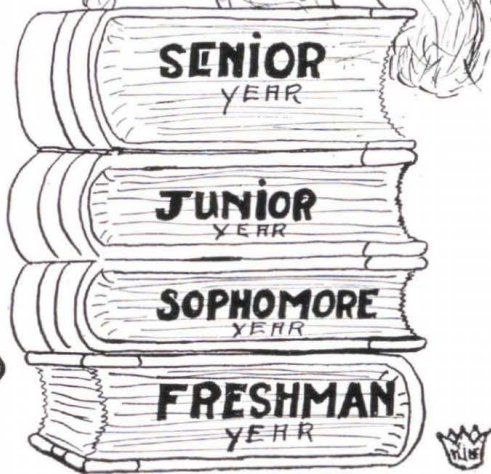 SENIOR
YEAR
JUNIOR
YEAR
SOPHOMORE
YEAR
FRESHMAN
YEAR